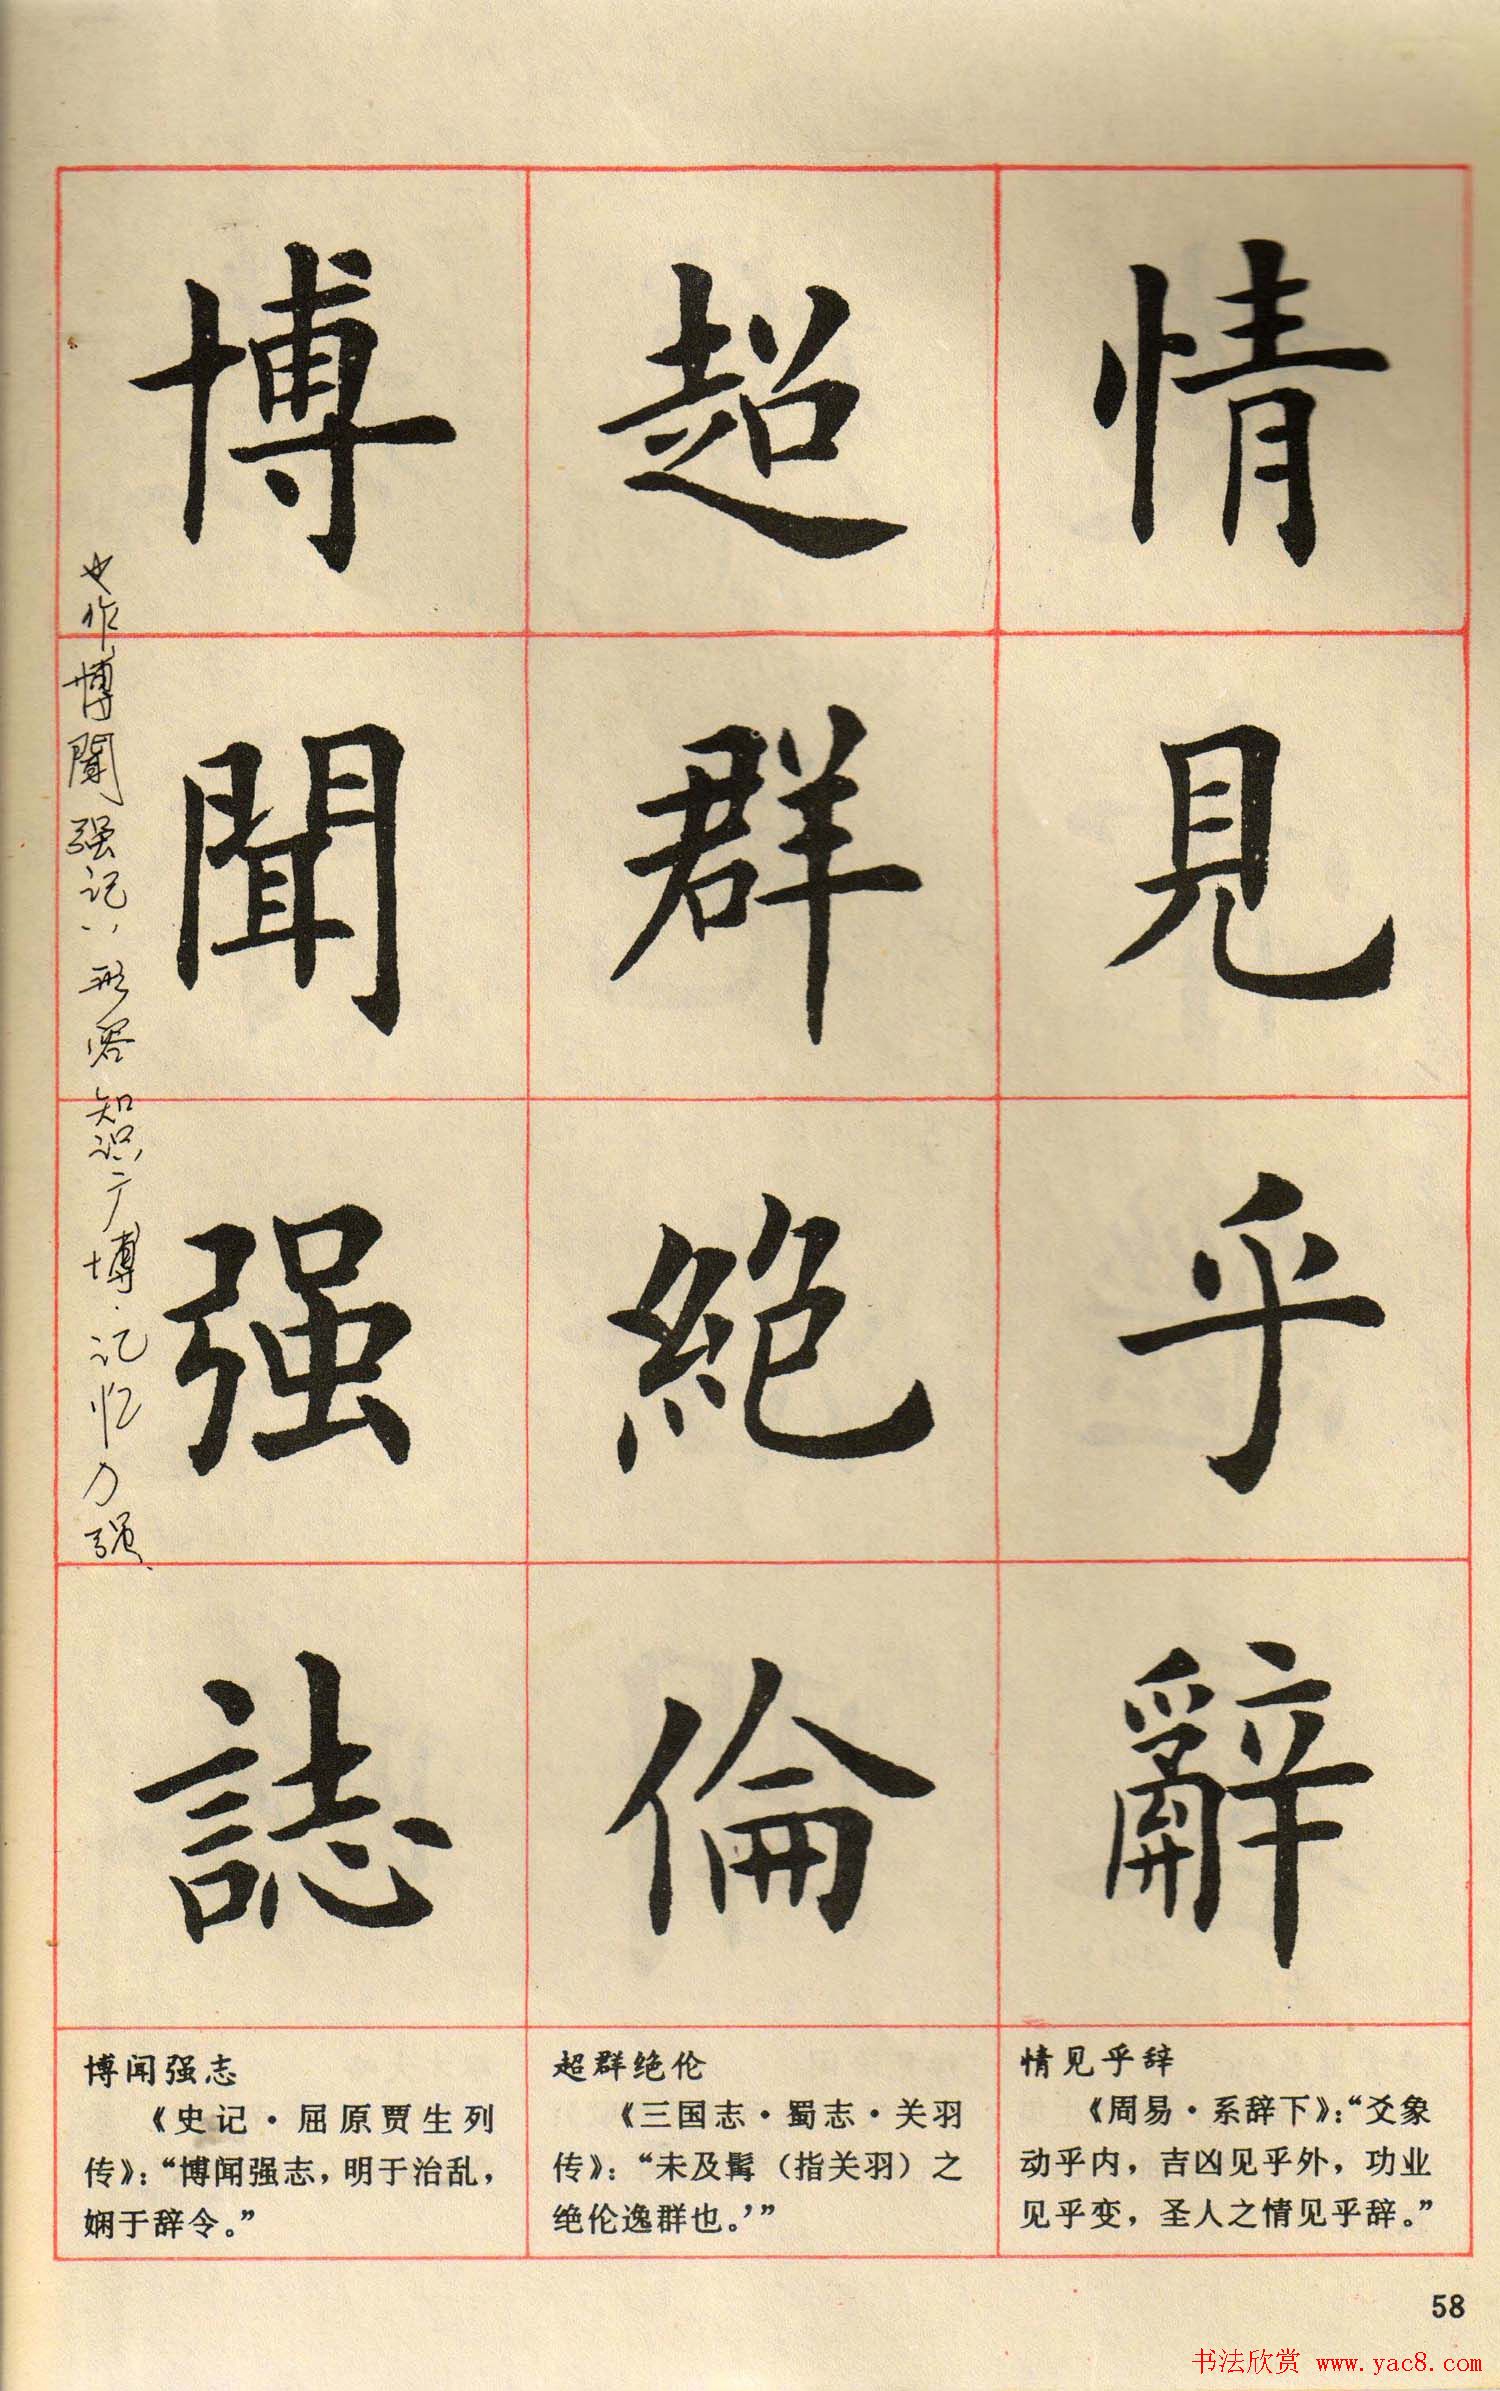 情見乎辭
超群絶倫
博聞强誌
也作博聞强记,,形容知识广博.记忆力强
情见乎辞
《周易·系辞下》：“爻象
动乎内，吉凶见乎外，功业
见乎变，圣人之情见乎辞。”
超群绝伦
《三国志·蜀志·关羽
传》：“未及髯（指关羽）之
绝伦逸群也。’”
博闻强志
《史记·屈原贾生列
传》：“博闻强志，明于治乱，
娴于辞令。”
58
书法欣赏 www.yac8.com